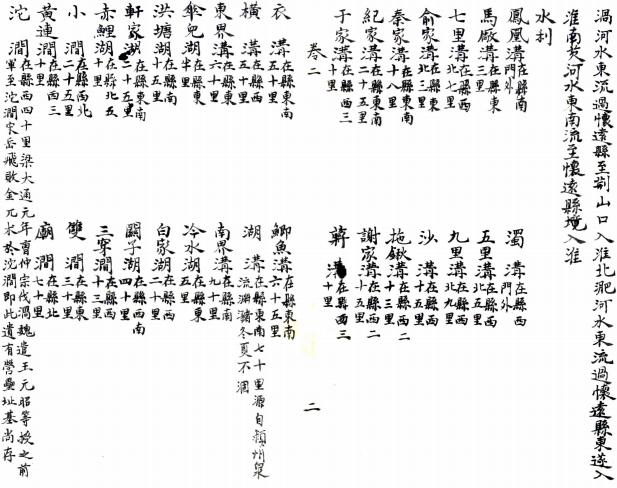 渦河水東流過懷遠縣至荆山口入淮北淝河水東流過懷遠縣東遂入
淮南黄河水東南流至懷遠縣境入淮
水利
鳳凰溝在縣南門外　濁溝在縣西門外
馬厰溝在縣東三里　五里溝在縣西北五里
七里溝在縣西北七里　九里溝在縣西北九里
俞家溝在縣東北三里　沙溝在縣西十五里
秦家溝在縣東南十八里　拖鍬溝在縣西二十三里
紀家溝在縣東南二十五里　謝家溝在縣西二十五里
于家溝在縣西三十里　溝在縣西三十里
卷二　二
衣溝在縣東南五十里　鯽魚溝在縣東南六十五里
橫溝在縣西五十里　湖溝在縣東南七十里源自潁州泉流淵潴冬夏不涸
東界溝在縣東六十里　南界溝在縣南九十里
傘兒湖在縣東半里　冷水湖在縣東五里
洪塘湖在縣南十五里　白家湖在縣西二十里
軒家湖在縣東南二十五里　闕子湖在縣西南四十里
赤鯉湖在縣北五十里　三穿澗在縣西十三里
小澗在縣西北二十五里　雙澗在縣東三十里
黃連澗在縣西三十里　廟澗在縣北七十里
沱澗在縣西四十里梁大通元年曹仲宗伐渦魏遣王元昭等援之前軍至沱澗宋岳飛敗金兀朮於沱澗即此遺有營壘址基尚存